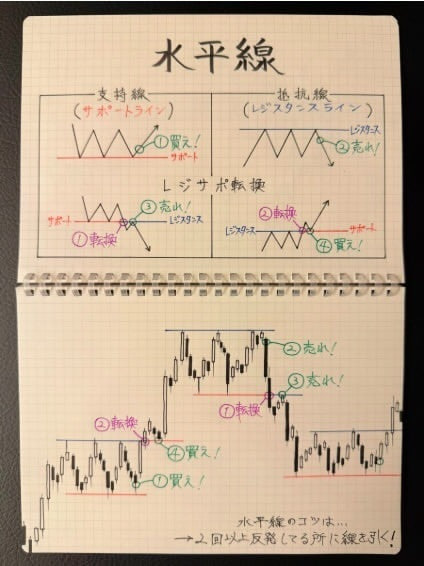 水平線
支持線
(サポートライン)
①買え!
サポート
抵抗線
(レジスタンスライン)
レジスタンス
②売れ!
レジサポ転換
③売れ!
サポート
レジスタンス
①転換
②転換
レジスタンス
サポート
④買え!
②売れ!
③売れ!
①転換
②転換
④買え!
①買え!
水平線のコツは…
→2回以上反発してる所に線を引く!